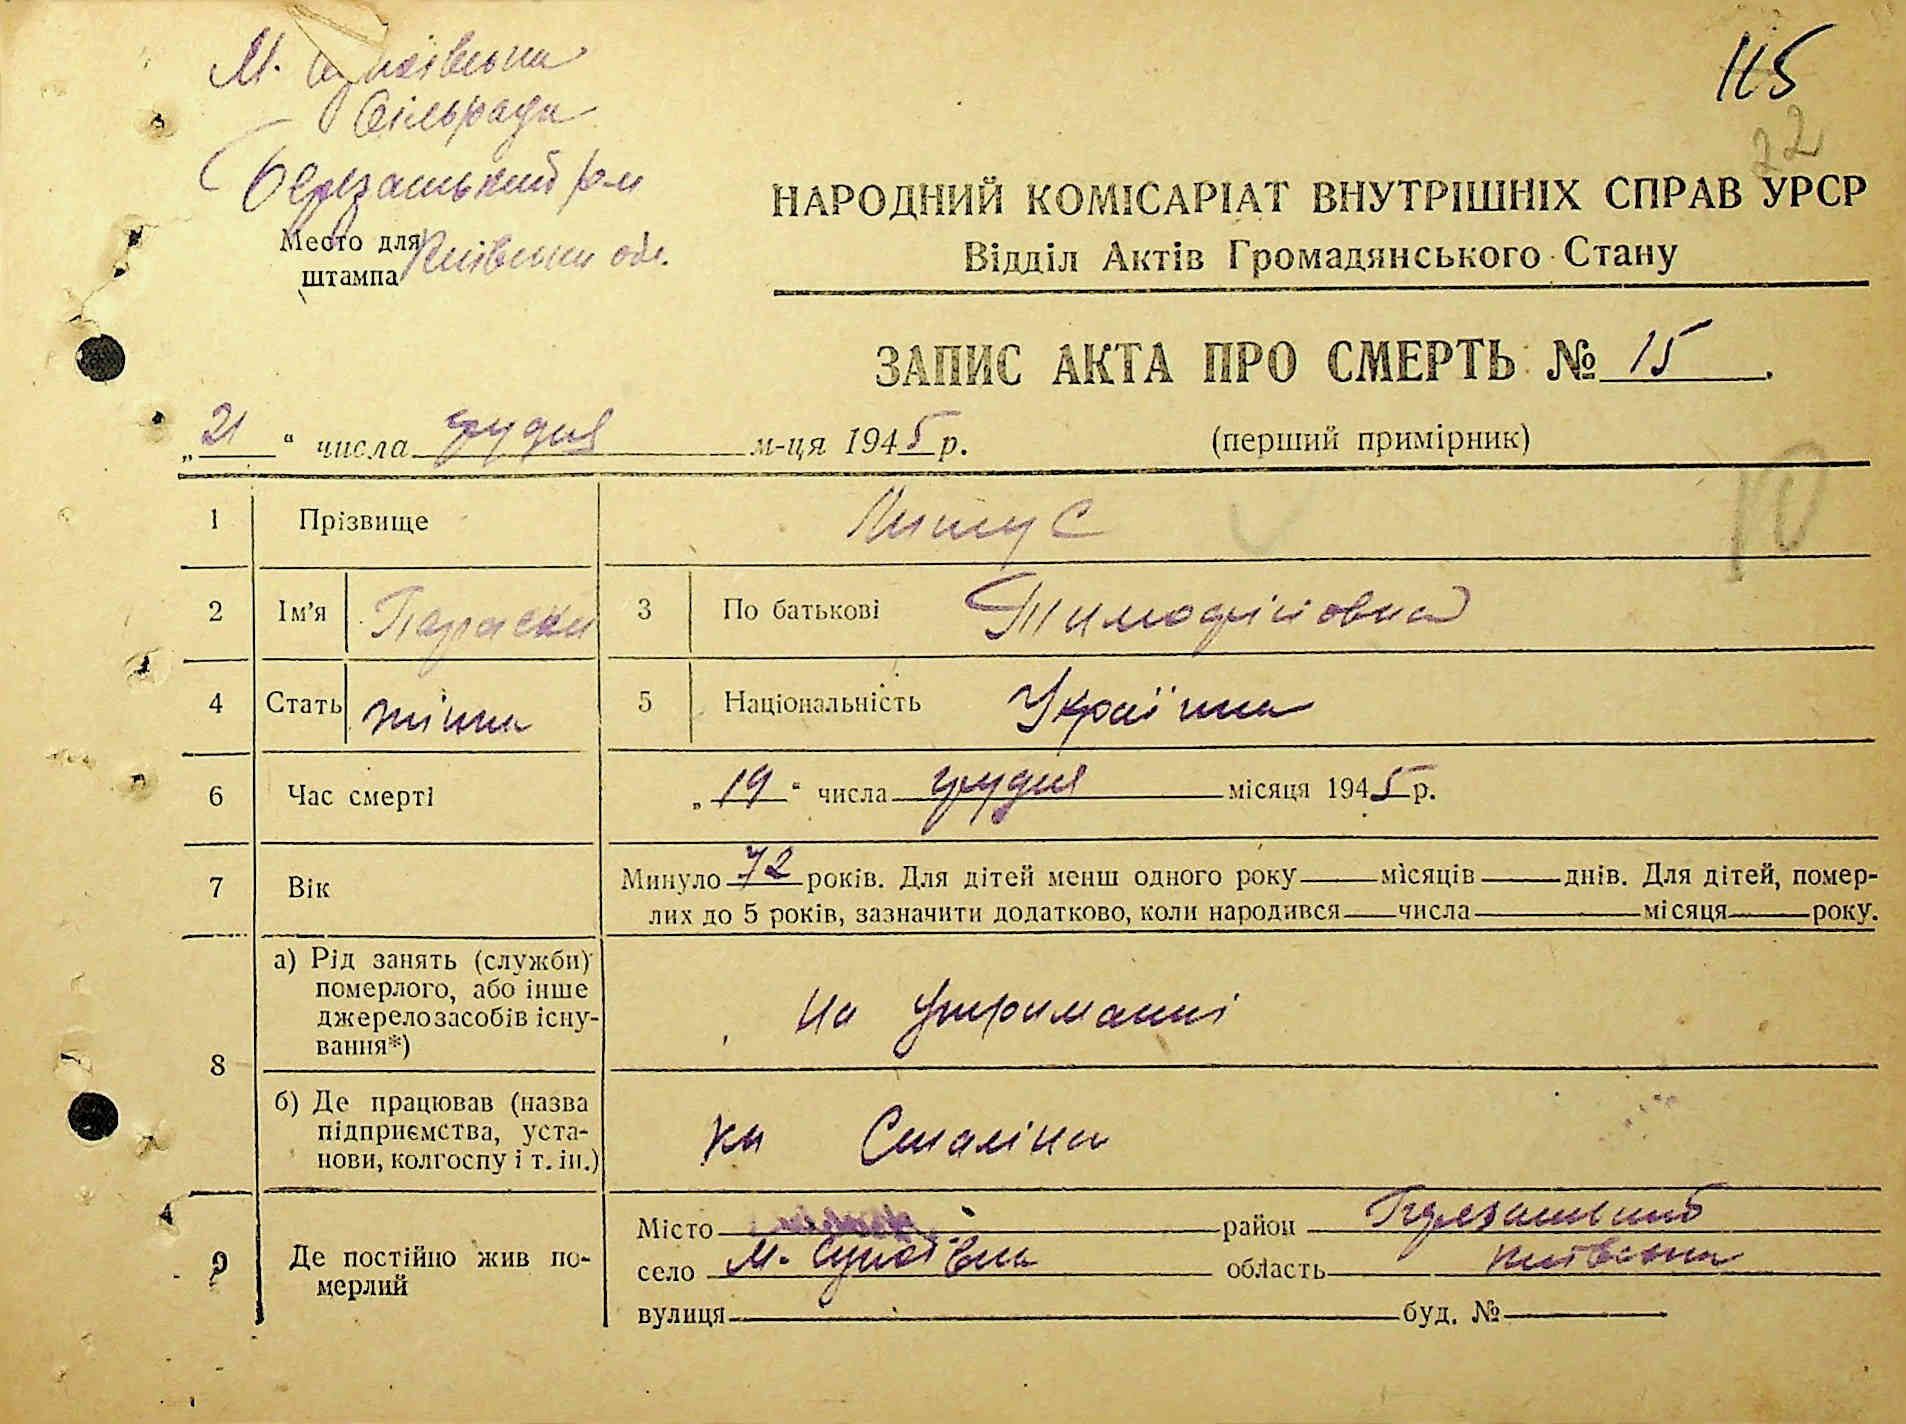 М. Супоївська
Сільрада
Березанський р-н
Київськи обл.
Место для
штампа
115
22
НАРОДНИЙ КОМІСАРІАТ ВНУТРІШНІХ СПРАВ УРСР
Відділ Актів Громадянського Стану
ЗАПИС АКТА ПРО СМЕРТЬ № 15.
„21“ числа грудня м-ця 1945 р. (перший примірник)
10
1 Прізвище
2 Ім’я Параска 3 По батькові Тимофіївна
4 Стать жінка 5 Національність Українка
6 Час смерті „19“ числа грудня місяця 1945 р.
7 Вік Минуло 72 років. Для дітей менш одного року — місяців — днів. Для дітей, помер-
лих до 5 років, зазначити додатково, коли народився — числа — місяця — року.
8 а) Рід занять (служби)
померлого, або інше
джерело засобів існу-
вання*)
на утриманні
б) Де працював (назва
підприємства, уста-
нови, колгоспу і т. ін.)
кп Сталіна
9 Де постійно жив по-
мерлий
Місто район Березанський
село М. Супоївка область Київська
вулиця буд. №